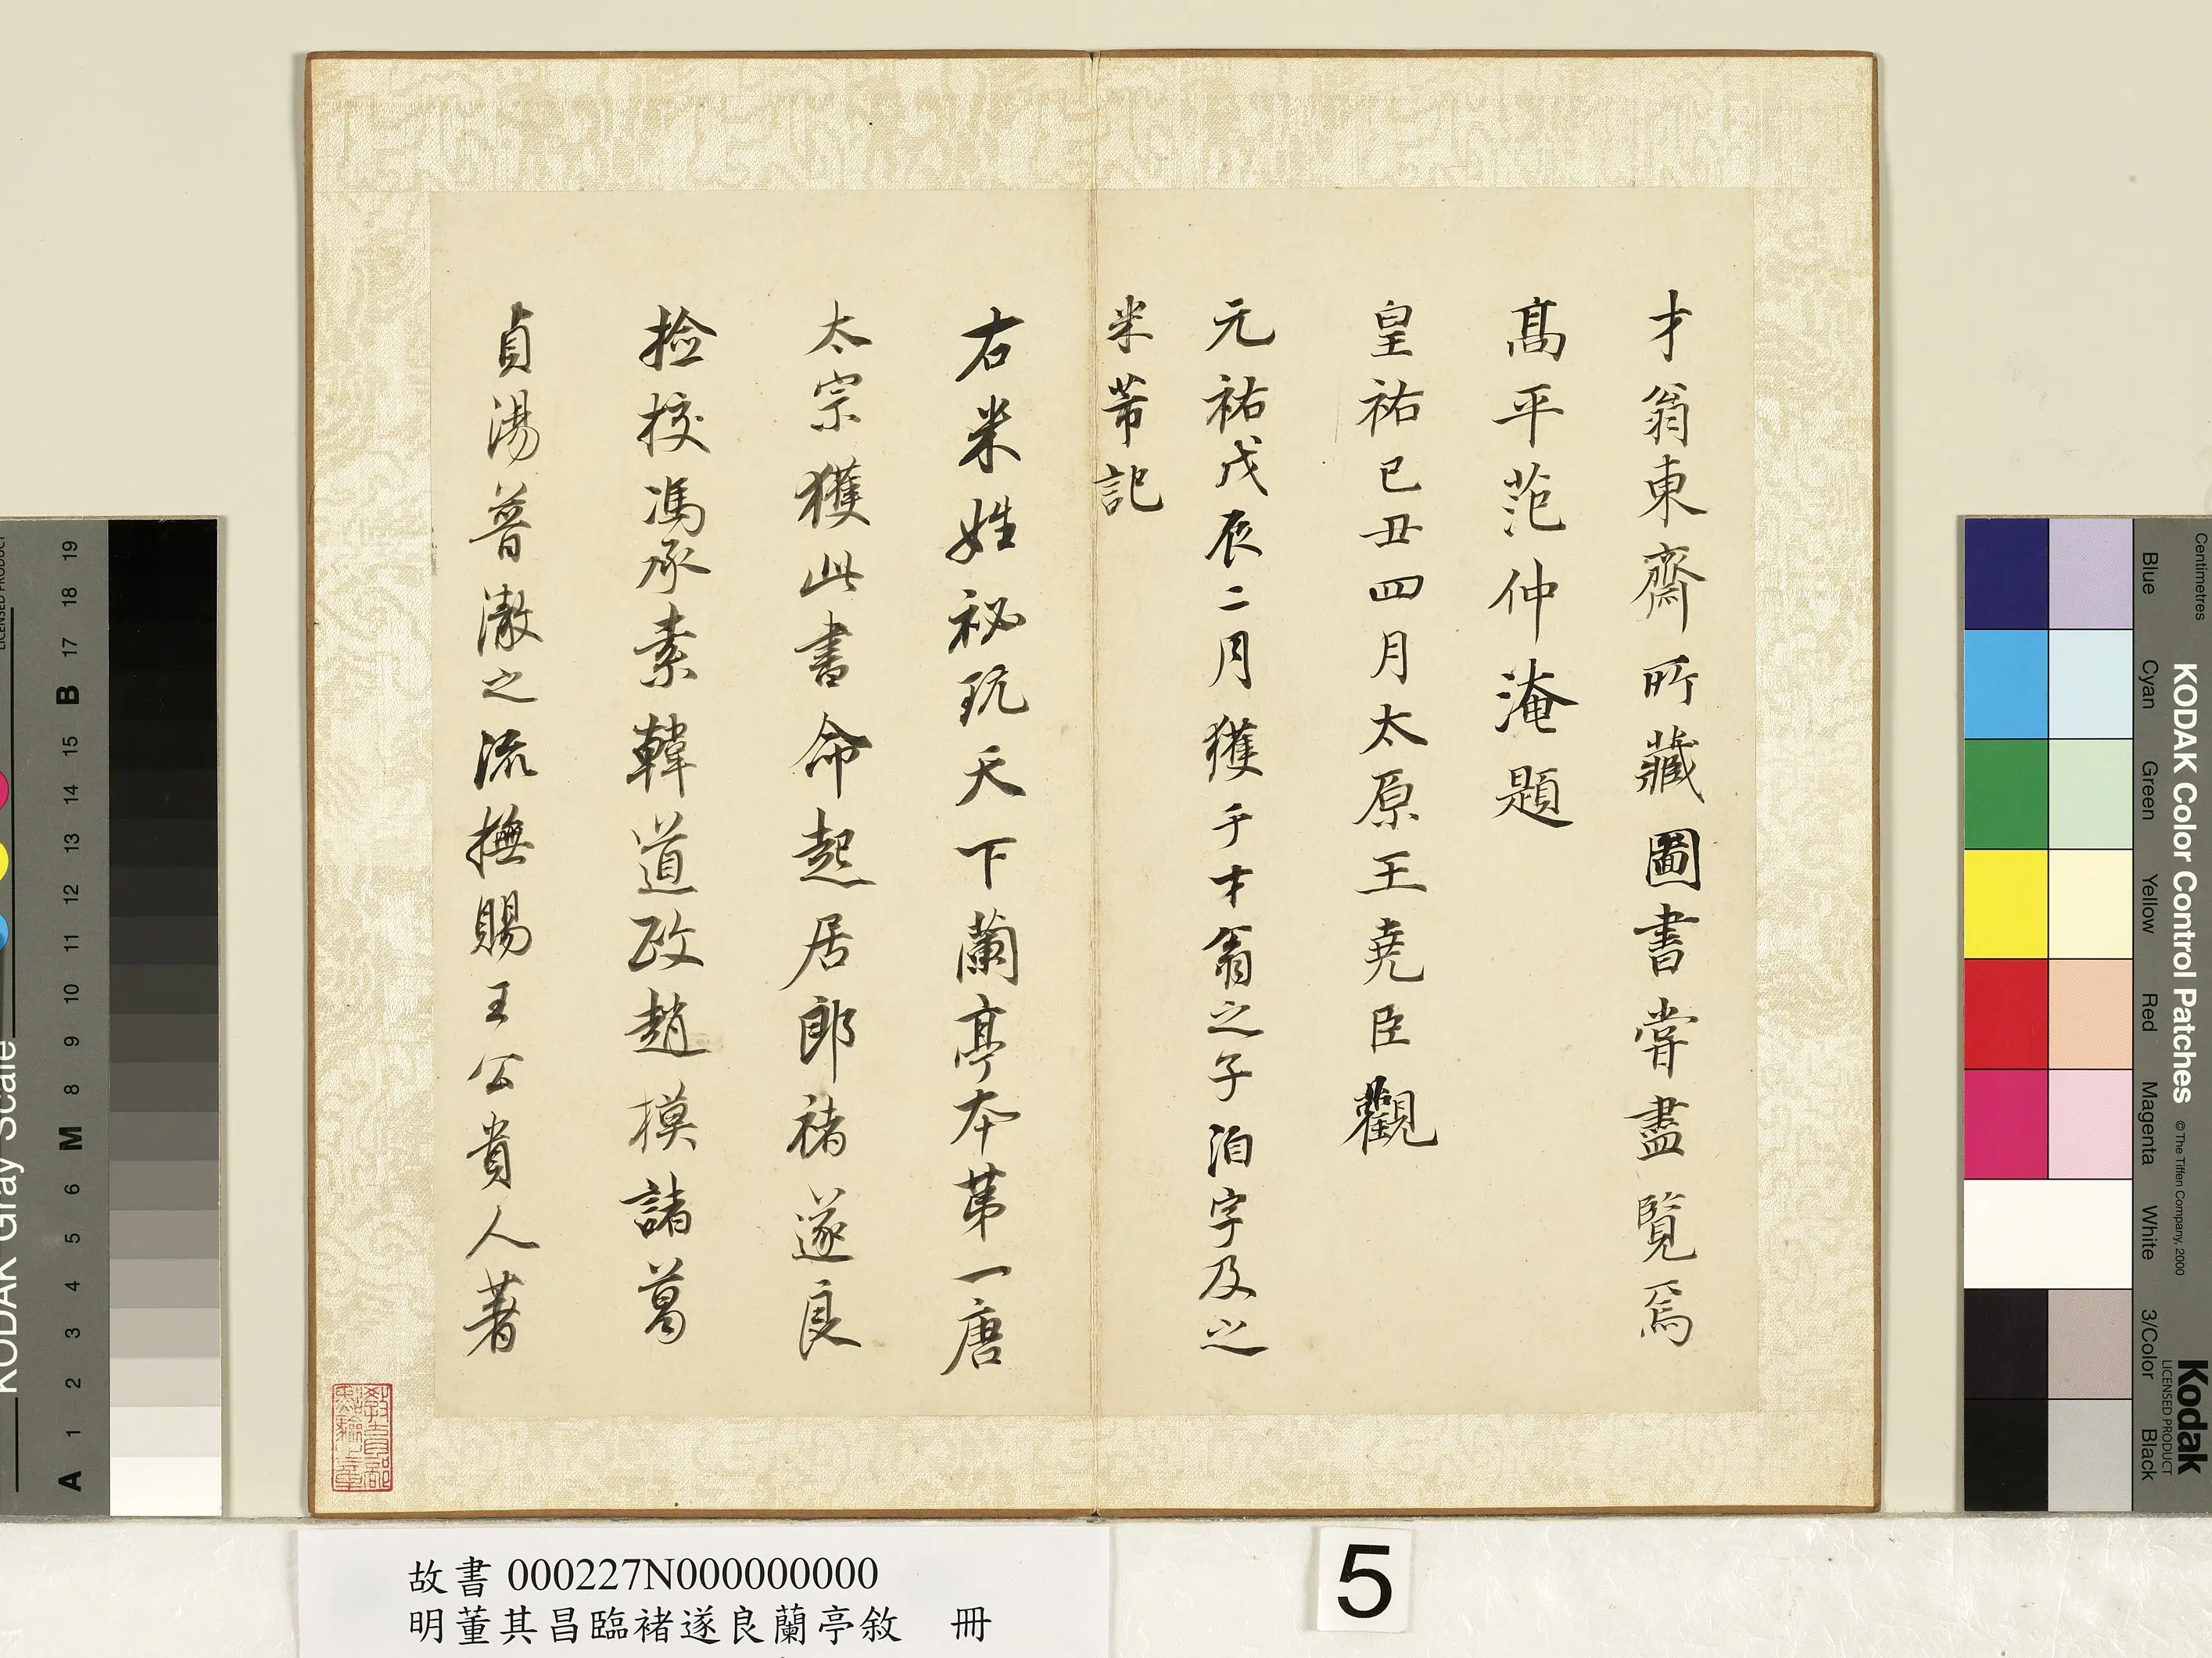 才翁東齋所藏圖書嘗盡覽焉
高平范仲淹題
皇祐已丑四月太原王堯臣觀
元祐戊辰二月獲于才翁之子洎字及之
米芾記
右米姓祕玩天下蘭亭本第一唐
太宗獲此書命起居郎褚遂良
撿挍馮承素韓道政趙模諸葛
貞湯普澈之流摹賜王公貴人著
教育部
點驗之章
故書 000227N000000000
明董其昌臨褚遂良蘭亭敘 冊
5
KODAK Gray Scale
LICENSED PRODUCT
A 1 2 3 4 5 6 M 8 9 10 11 12 13 14 15 B 17 18 19
KODAK Color Control Patches
© The Tiffen Company, 2000
Kodak
LICENSED PRODUCT
Centimetres
Blue
Cyan
Green
Yellow
Red
Magenta
White
3/Color
Black